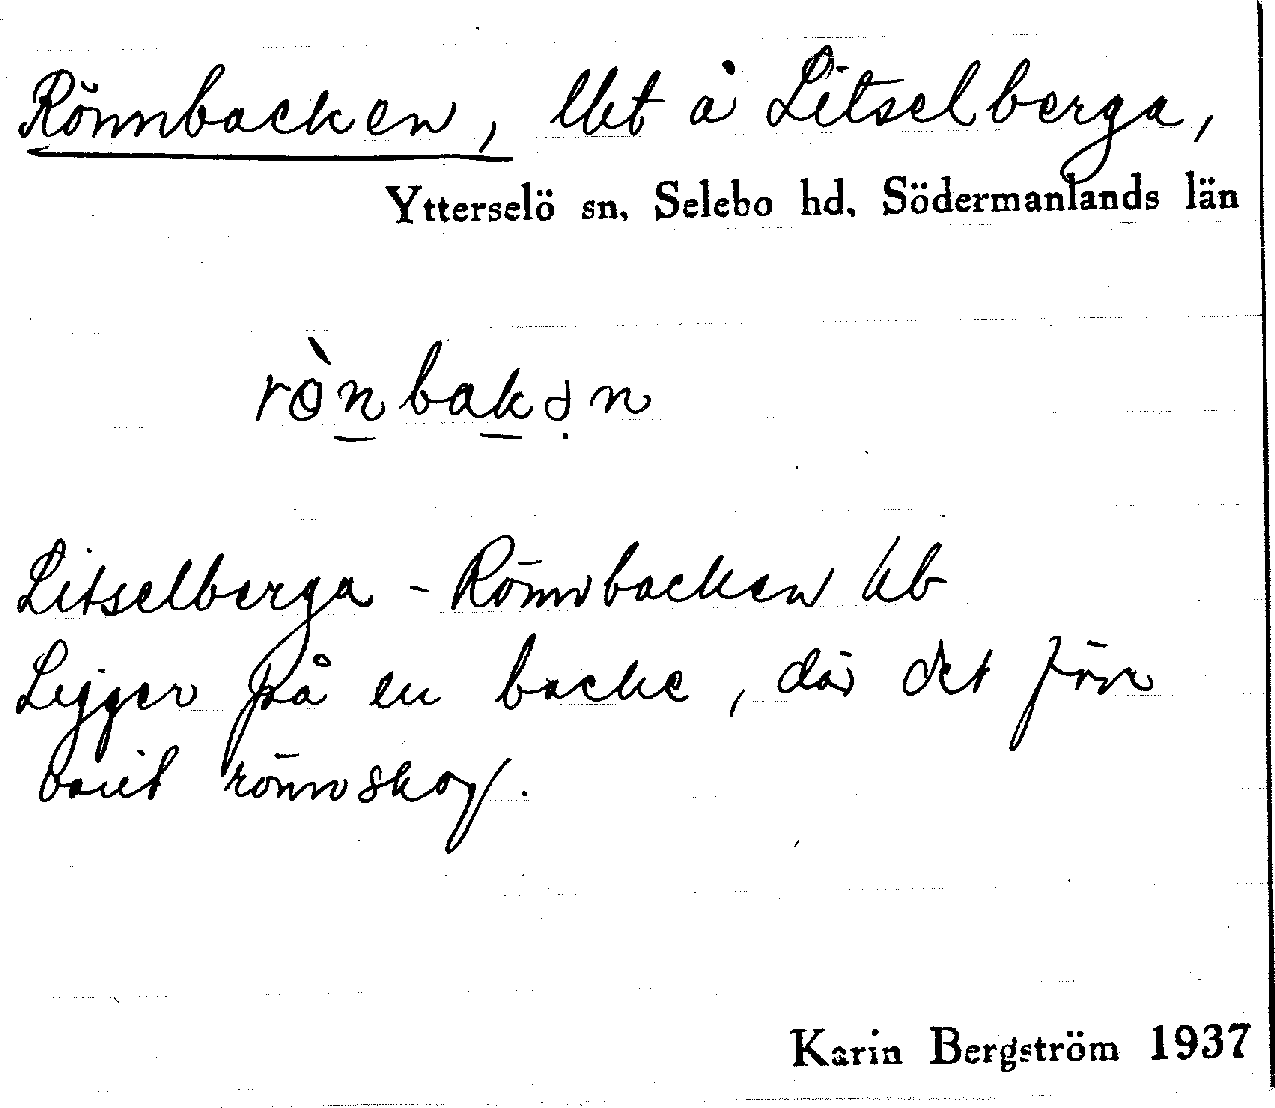 Rönnbacken, lbt å Litselberga,
Ytterselö sn, Selebo hd, Södermanlands län
rònbakən
Litselberga - Rönnbacken kb
Ligger på en backe, där det förr
varit rönnskog.
Karin Bergström 1937